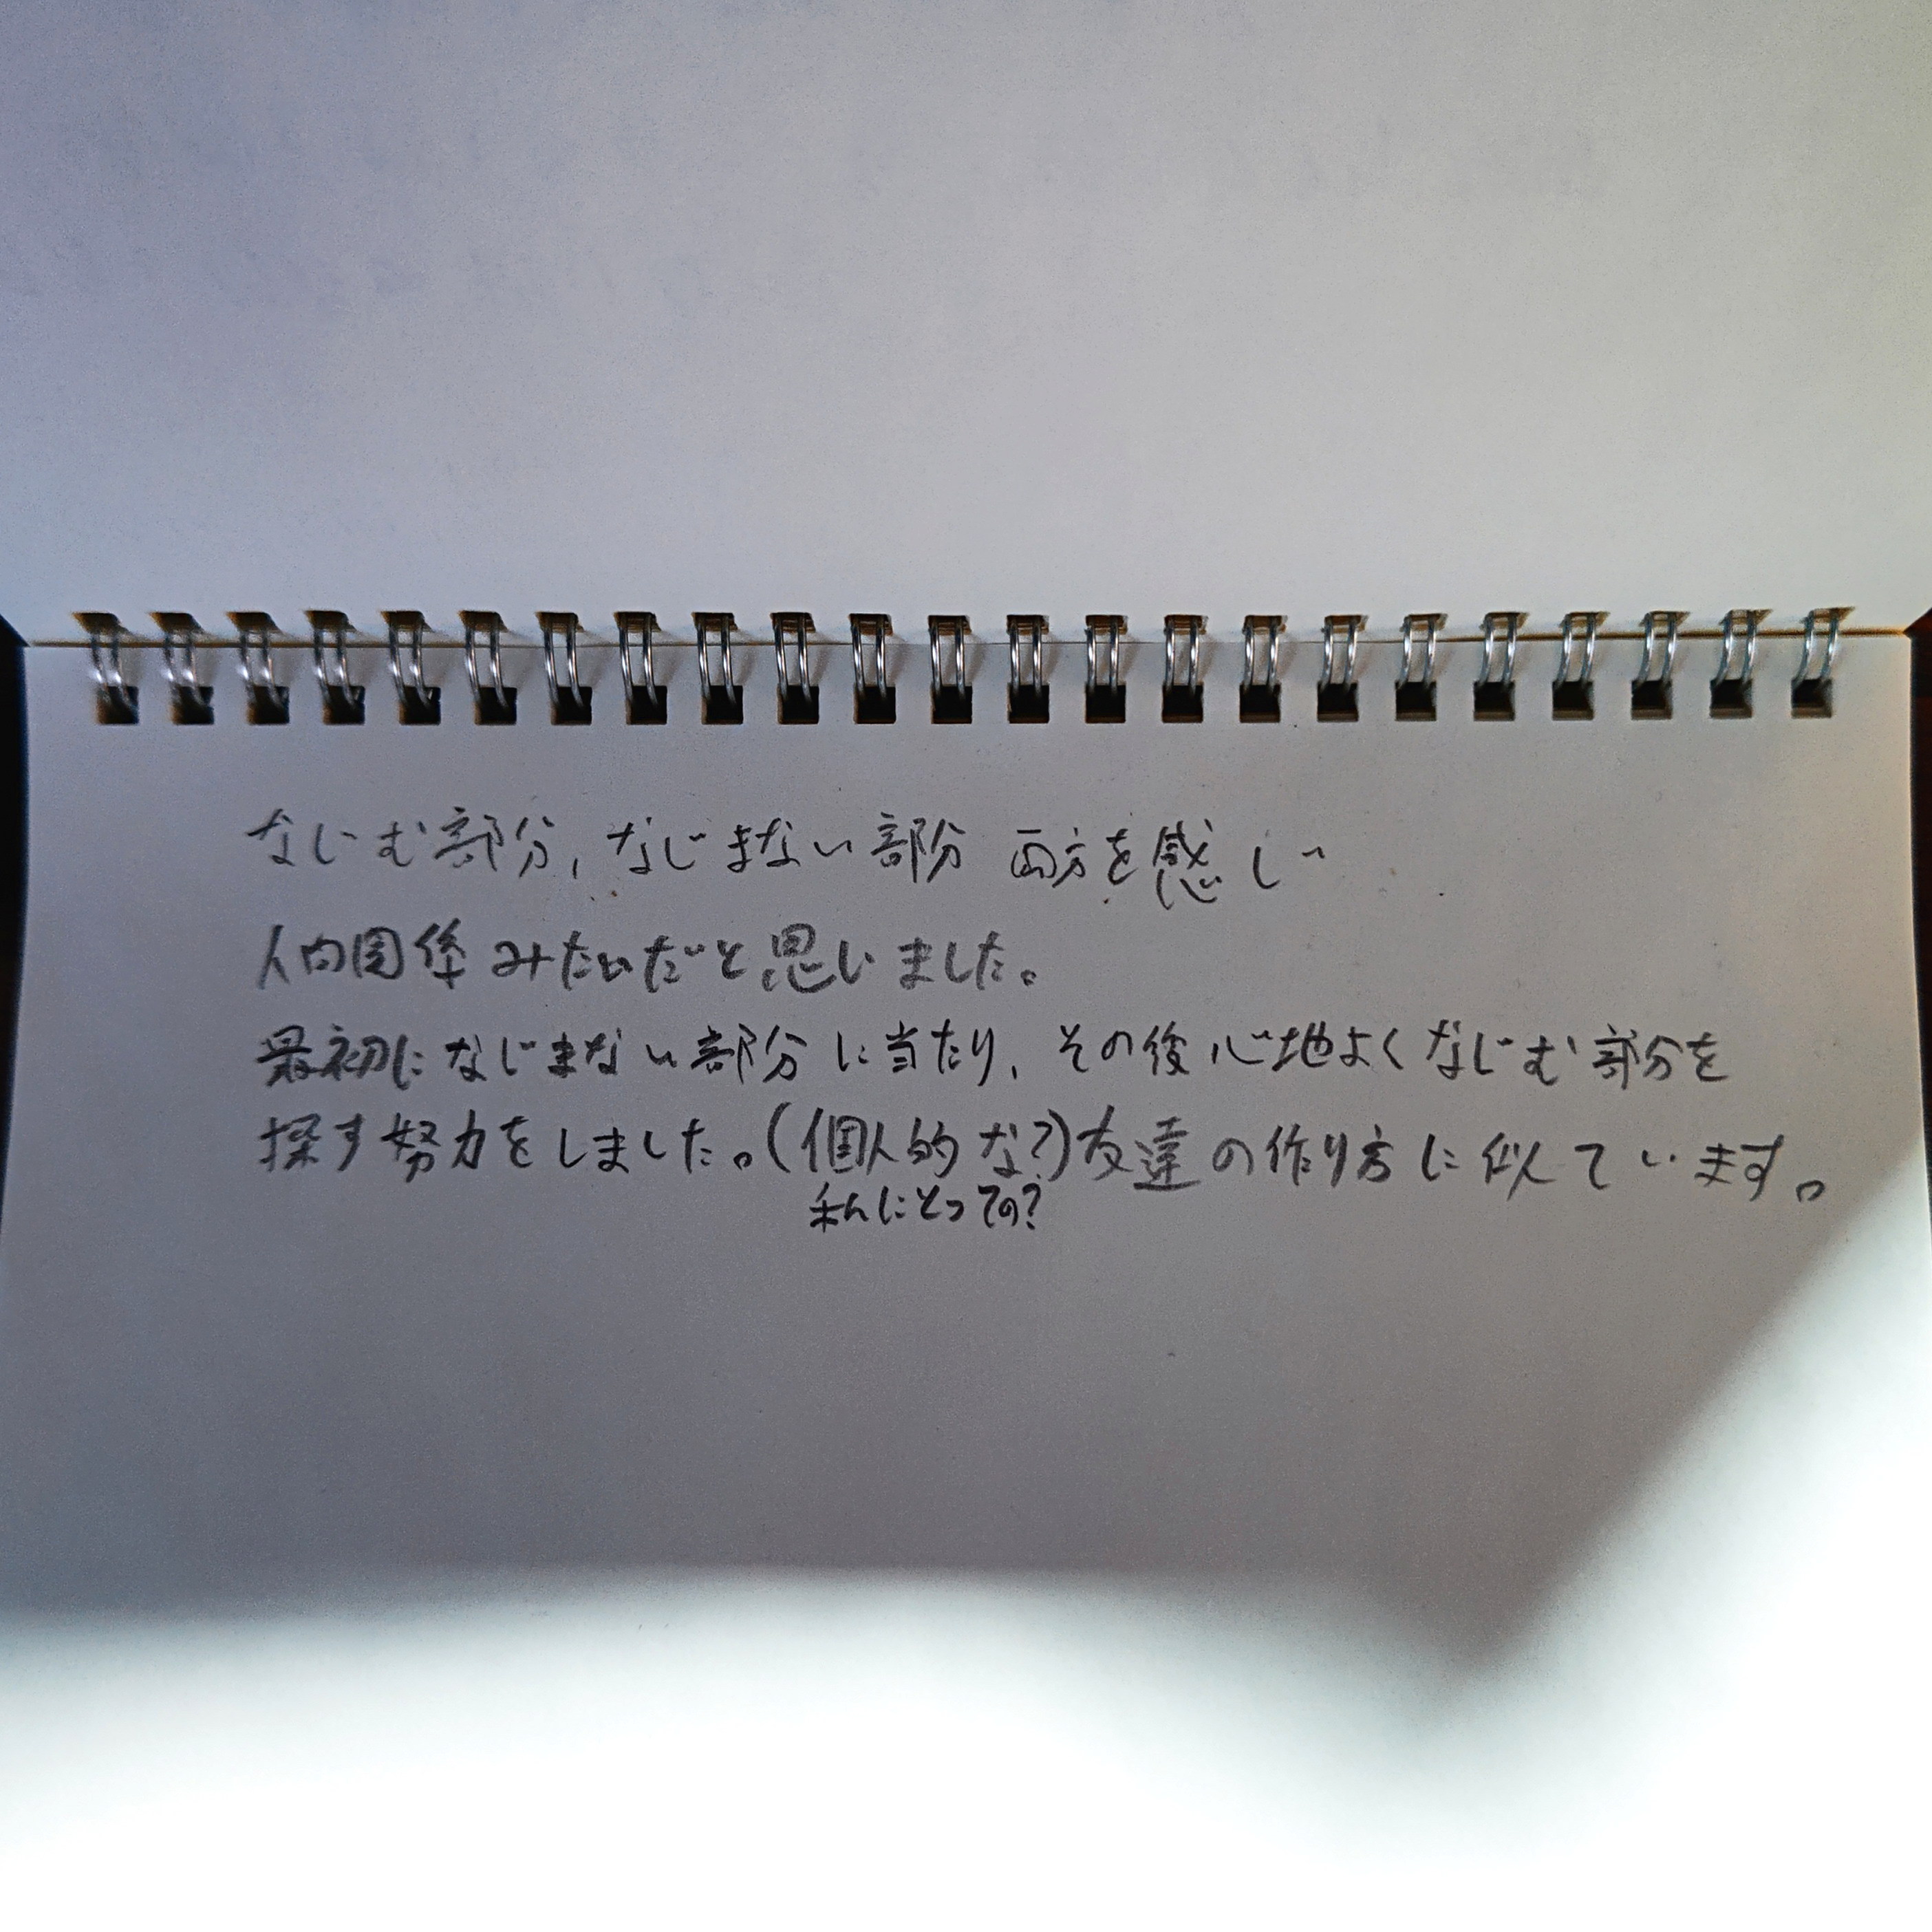 なじむ部分,なじまない部分 両方を感じ
人間関係みたいだと思いました。
最初になじまない部分に当たり,その後心地よくなじむ部分を
探す努力をしました。(個人的な?)友達の作り方に似ています。
私にとっての?